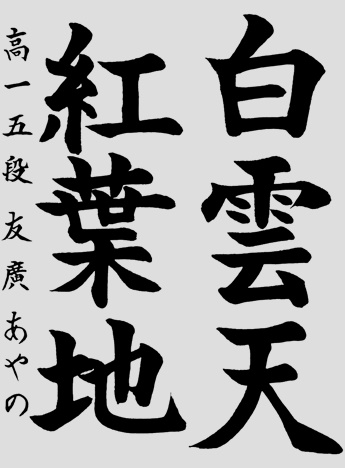 白雲天
紅葉地
高一五段友廣あやの